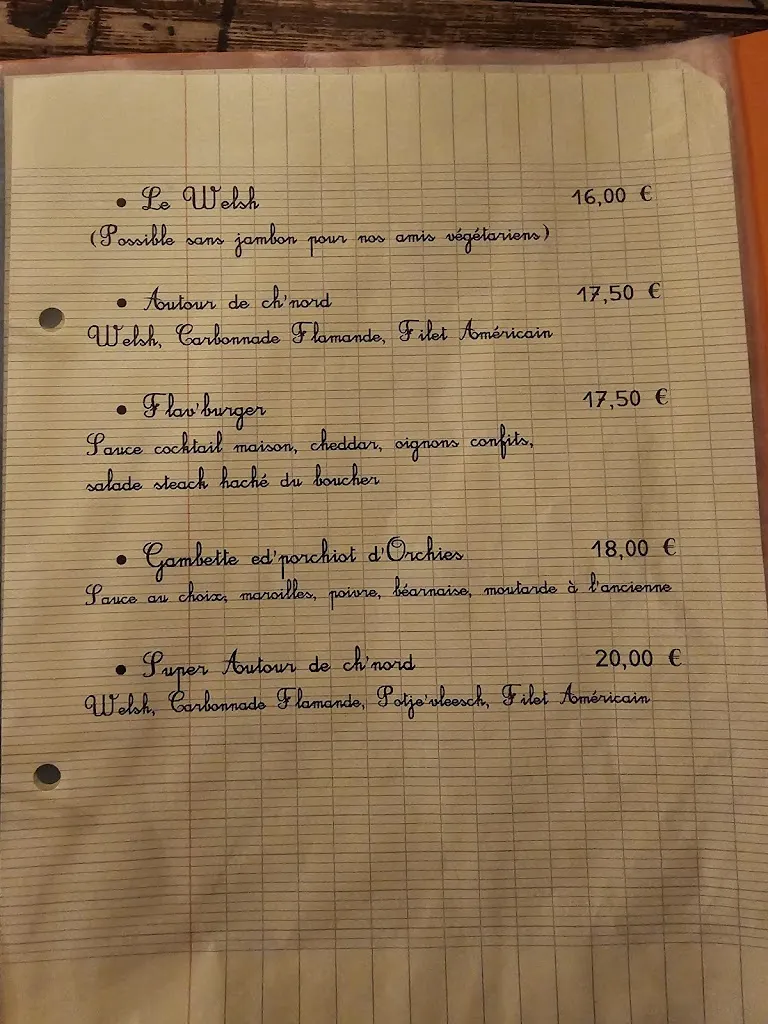 • Le Welsh 16,00 €
(Possible sans jambon pour nos amis végétariens)
• Autour de ch'nord 17,50 €
Welsh, Carbonnade Flamande, Filet Américain
• Flav'burger 17,50 €
Sauce cocktail maison, cheddar, oignons confits,
salade steack haché du boucher
• Gambette ed'porchiot d'Orchies 18,00 €
Sauce au choix; maroilles, poivre, béarnaise, moutarde à l'ancienne
• Super Autour de ch'nord 20,00 €
Welsh, Carbonnade Flamande, Potje'vleesch, Filet Américain